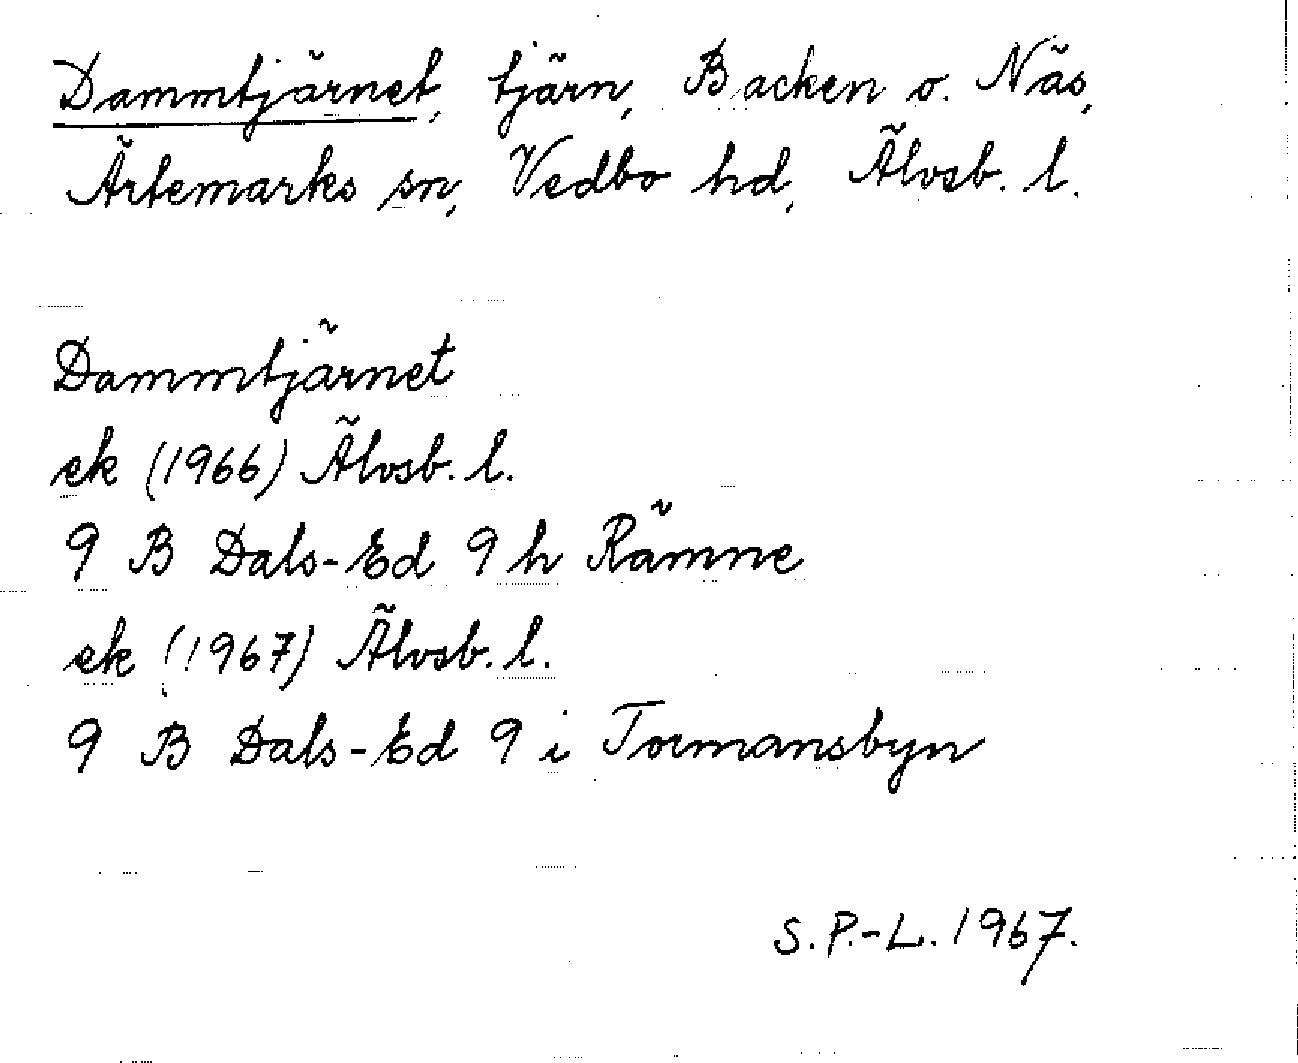 Dammtjärnet, tjärn, Backen o. Näs,
Ärtemarks sn, Vedbo hd, Älvsb. l.
Dammtjärnet
ek (1966) Älvsb. l.
9 B Dals-Ed 9 h Rämne
ek (1967) Älvsb. l.
9 B Dals-Ed 9 i Tormansbyn
S. P.-L. 1967.